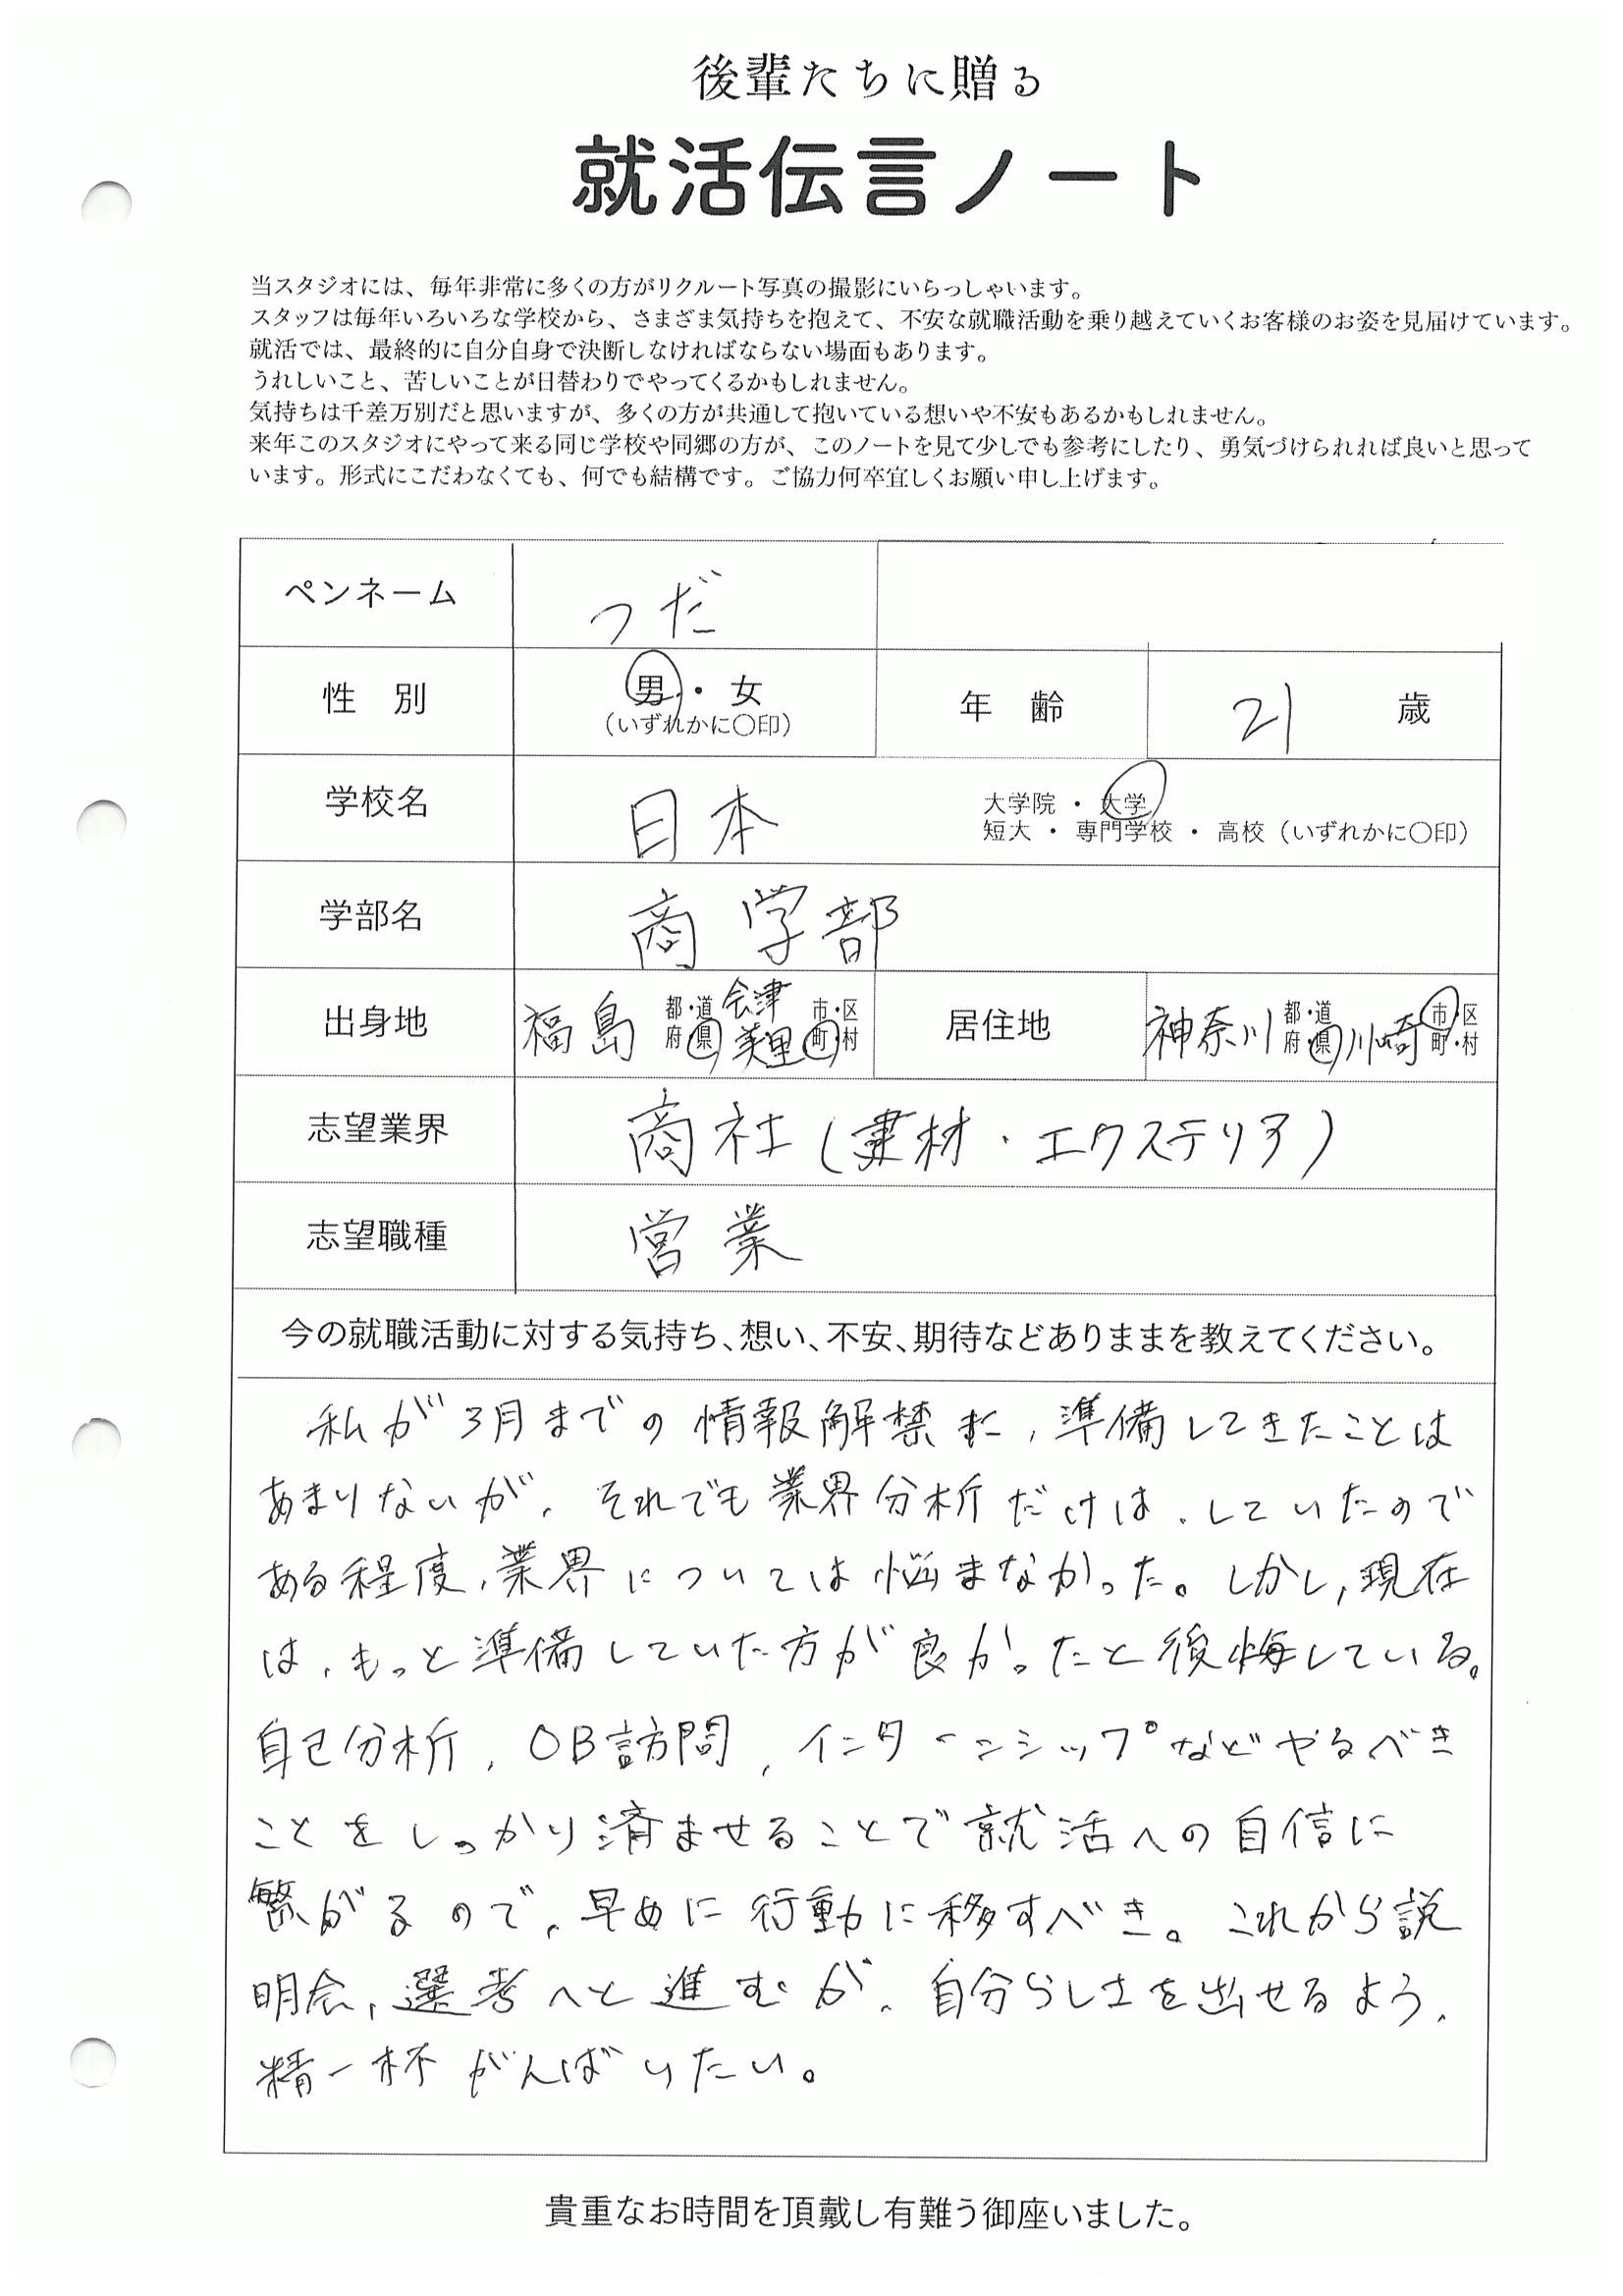 後輩たちに贈る
就活伝言ノート
当スタジオには、毎年非常に多くの方がリクルート写真の撮影にいらっしゃいます。
スタッフは毎年いろいろな学校から、さまざま気持ちを抱えて、不安な就職活動を乗り越えていくお客様のお姿を見届けています。
就活では、最終的に自分自身で決断しなければならない場面もあります。
うれしいこと、苦しいことが日替わりでやってくるかもしれません。
気持ちは千差万別だと思いますが、多くの方が共通して抱いている想いや不安もあるかもしれません。
来年このスタジオにやって来る同じ学校や同郷の方が、このノートを見て少しでも参考にしたり、勇気づけられれば良いと思って
います。形式にこだわなくても、何でも結構です。ご協力何卒宜しくお願い申し上げます。
ペンネーム つだ
性 別 男・女 年 齢 21 歳
（いずれかに〇印）
学校名 日本 大学院・大学
短大・専門学校・高校（いずれかに〇印）
学部名 商学部
出身地 福島 都・道府・県 会津美里 市・区町・村 居住地 神奈川 都・道府・県 川崎 市・区町・村
志望業界 商社(建材・エクステリア)
志望職種 営業
今の就職活動に対する気持ち、想い、不安、期待などありままを教えてください。
私が3月までの情報解禁まに、準備してきたことは
あまりないが、それでも業界分析だけは、していたので
ある程度、業界については悩まなかった。しかし、現在
は、もっと準備していた方が良かったと後悔している。
自己分析、OB訪問、インターンシップなどやるべき
ことをしっかり済ませることで就活への自信に
繋がるので、早めに行動に移すべき。これから説
明会、選考へと進むが、自分らしさを出せるよう、
精一杯がんばりたい。
貴重なお時間を頂戴し有難う御座いました。